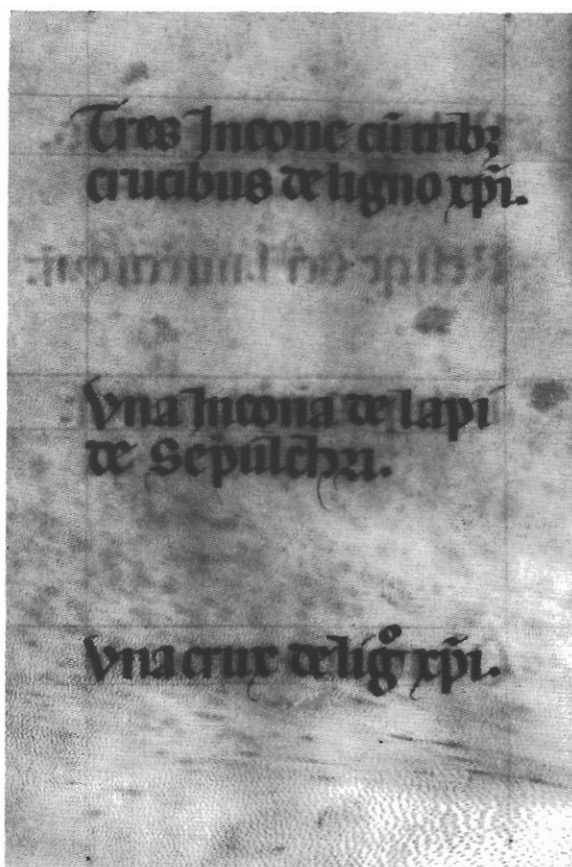 Tres Incone cū tribꝫ
crucibus de ligno xp̄i.
Vna Incona de lapi
de Sepulch̄ri.
Vna crux de ligͦ xp̄i.